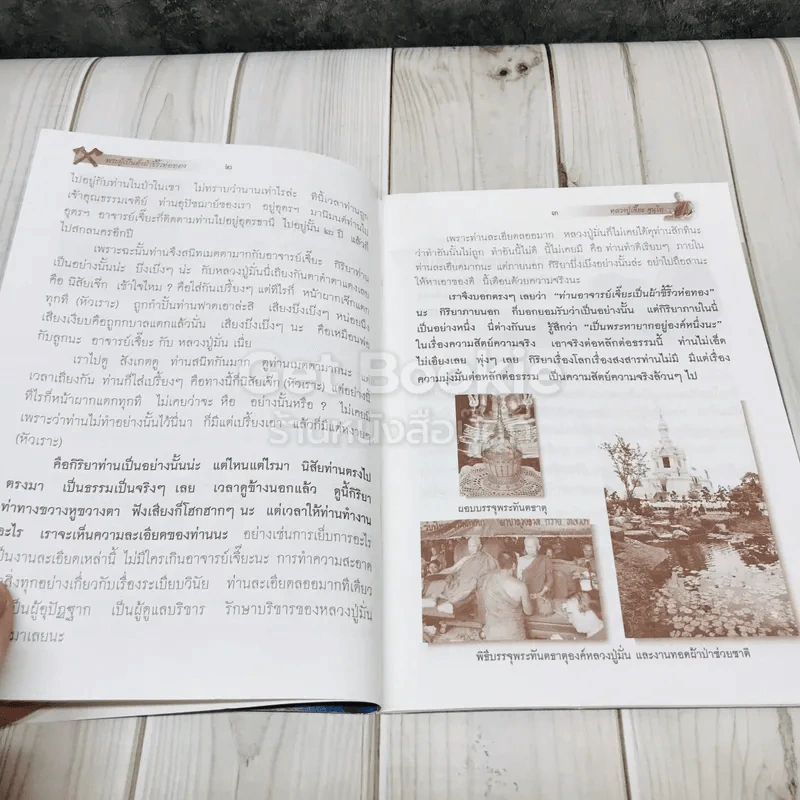 พระผู้เป็นดั่งผ้าขี้ริ้วห่อทอง
๒
ไปอยู่กับท่านในป่าในเขา ไม่ทราบว่านานเท่าไรล่ะ ทีนี้เวลาท่านถูก
เจ้าคุณธรรมเจดีย์ ท่านอุปัชฌาย์ของเรา อยู่อุดรฯ มานิมนต์ท่านไป
อุดรฯ อาจารย์เจี๊ยะก็ติดตามท่านไปอยู่อุดรธานี ไปอยู่นั้น ๒ ปี แล้วก็
ไปสกลนครอีกปี
เพราะฉะนั้นท่านจึงสนิทเมตตามากกับอาจารย์เจี๊ยะ กิริยาท่าน
เป็นอย่างนั้นน่ะ บึ่งเบิ่งๆ น่ะ กับหลวงปู่มั่นนี่เถียงกันตาดำตาแดงเลย
คือ นิสัยเจ๊ก เข้าใจไหม ? คือใส่กันเปรี้ยงๆ แต่ทีไรก็ หน้าผากเจ๊กแตก
ทุกที (หัวเราะ) ถูกกำปั้นท่านฟาดเอาล่ะสิ เสียงบึ่งเบิ่งๆ หน่อยหนึ่ง
เสียงเงียบคือถูกกบาลแตกแล้วนั่น เสียงบึ่งเบิ่งๆ นะ คือเหมือนพ่อ
กับลูกนะ อาจารย์เจี๊ยะ กับ หลวงปู่มั่น เนี่ย
เราไปดู สังเกตดู ท่านสนิทกันมาก ดูท่านเมตตามากนะ แต่
เวลาเถียงกัน ท่านก็ใส่เปรี้ยงๆ คือทางนี้ก็นิสัยเจ๊ก (หัวเราะ) แต่อย่างนี้
ทีไรก็หน้าผากแตกทุกที ไม่เคยว่าจะ หือ อย่างนั้นหรือ ? ไม่เคยมี
เพราะว่าท่านไม่ทำอย่างนั้นไว้นี่นา ก็มีแต่เปรี้ยงเอา แล้วก็มีแต่หงายๆ
(หัวเราะ)
คือกิริยาท่านเป็นอย่างนั้นน่ะ แต่ไหนแต่ไรมา นิสัยท่านตรงไป
ตรงมา เป็นธรรมเป็นจริงๆ เลย เวลาดูข้างนอกแล้ว ดูนี้กิริยา
ท่าทางขวางหูขวางตา ฟังเสียงก็โฮกฮากๆ นะ แต่เวลาให้ท่านทำงาน
อะไร เราจะเห็นความละเอียดของท่านนะ อย่างเช่นการเย็บการอะไร
เป็นงานละเอียดเหล่านี้ ไม่มีใครเกินอาจารย์เจี๊ยะนะ การทำความสะอาด
สิ่งทุกอย่างเกี่ยวกับเรื่องระเบียบวินัย ท่านละเอียดลออมากทีเดียว
เป็นผู้อุปัฏฐาก เป็นผู้ดูแลบริขาร รักษาบริขารของหลวงปู่มั่น
มาเลยนะ
๓
หลวงปู่เจี๊ยะ จุนฺโท
เพราะท่านละเอียดลออมาก หลวงปู่มั่นก็ไม่เคยได้ดุท่านสักทีนะ
ว่าทำอันนั้นไม่ถูก ทำอันนี้ไม่ดี นี้ไม่เคยมี คือ ท่านทำดีเรียบๆ ภายใน
ท่านละเอียดมากนะ แต่ภายนอก กิริยาบึ่งเบิ่งอย่างนั้นล่ะ อย่าไปถือสานะ
ให้หาเอาของดี นี้เตือนด้วยความจริงนะ
เราจึงบอกตรงๆ เลยว่า “ท่านอาจารย์เจี๊ยะเป็นผ้าขี้ริ้วห่อทอง”
นะ กิริยาภายนอก ก็บอกยอมรับว่าเป็นอย่างนั้น แต่กิริยาภายในนี้
เป็นอย่างหนึ่ง นี่ต่างกันนะ รู้สึกว่า “เป็นพระหายากอยู่องค์หนึ่งนะ”
ในเรื่องความสัตย์ความจริง เอาจริงต่อหลักต่อธรรมนี้ ท่านไม่เอ็ด
ไม่เอียงเลย พุ่งๆ เลย กิริยาเรื่องโลกเรื่องสงสารท่านไม่มี มีแต่เรื่อง
ความมุ่งมั่นต่อหลักต่อธรรม เป็นความสัตย์ความจริงล้วนๆ ไป
ผอบบรรจุพระทันตธาตุ
พิธีบรรจุพระทันตธาตุองค์หลวงปู่มั่น และงานทอดผ้าป่าช่วยชาติ
Get Bookie
ร้านหนังสือเก่า